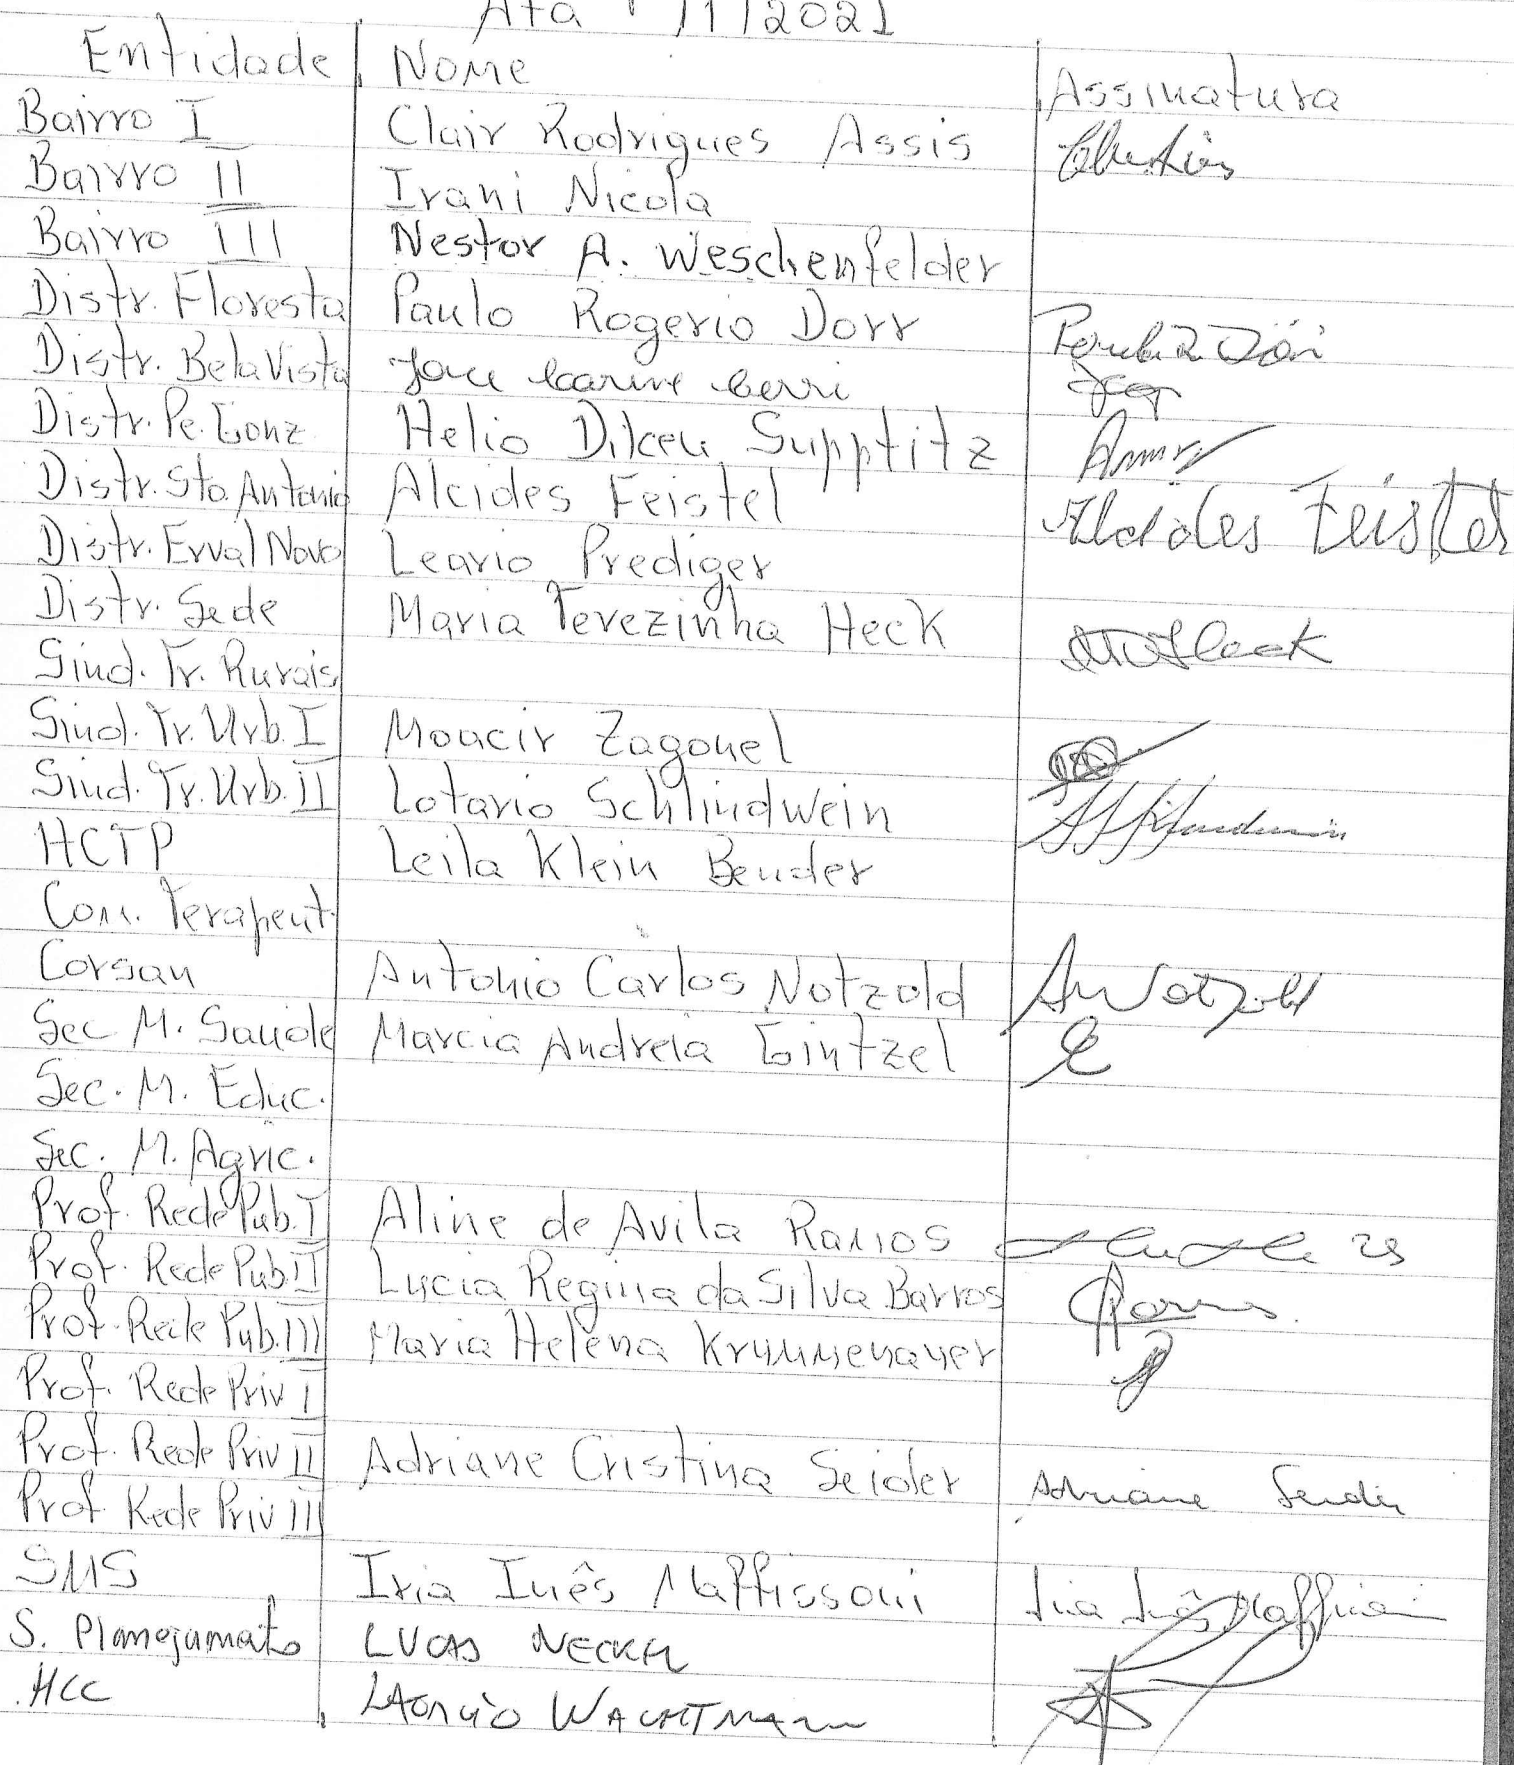 Ata /1/2021
Entidade Nome Assinatura
Bairro I Clair Rodrigues Assis
Bairro II Irani Nicola
Bairro III Nestor A. Weschenfelder
Distr. Floresta Paulo Rogerio Dorr
Distr. Bela Vista Karine Berri
Distr. Pe. Gonz Helio Dilceu Supptitz
Distr. Sto. Antonio Alcides Feistel Alcides Feistel
Distr. Erval Novo Leario Prediger
Distr. Sede Maria Terezinha Heck
Sind. Tr. Rurais
Sind. Tr. Urb. I Moacir Zagonel
Sind. Tr. Urb. II Lotario Schlindwein
HCTP Leila Klein Bender
Com. Terapeut.
Corsan Antonio Carlos Notzold
Sec M. Saude Marcia Andreia Gintzel
Sec. M. Educ.
Sec. M. Agric.
Prof. Rede Pub. I Aline de Avila Ramos
Prof. Rede Pub. II Lucia Regina da Silva Barros
Prof. Rede Pub. III Maria Helena Krummenauer
Prof. Rede Priv I
Prof. Rede Priv II Adriane Cristina Seider Adriane Seider
Prof. Rede Priv III
SMS Iria Inês Maffissoni Iria Inês Maffissoni
S. Planejamato LUCAS NECKEL
HCC WACHTMANN